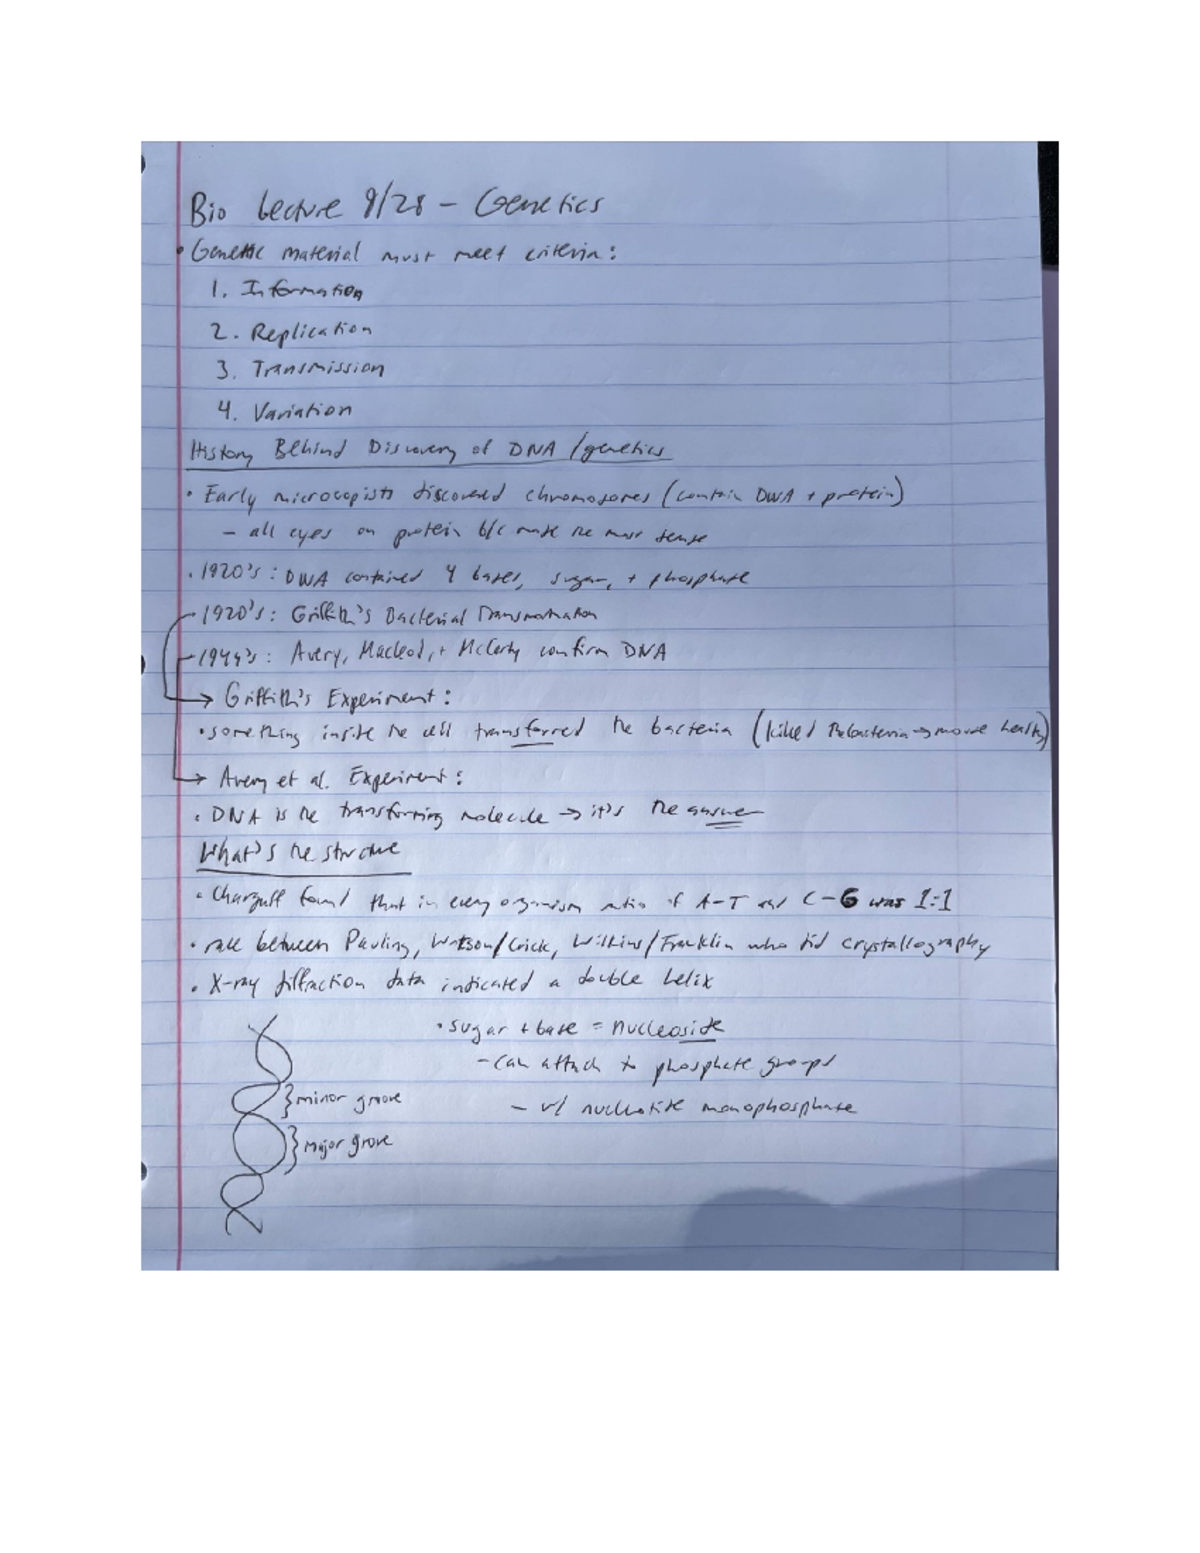 Bio Lecture 9/28 - Genetics
• Genetic material must meet criteria:
1. Information
2. Replication
3. Transmission
4. Variation
History Behind Discovery of DNA/genetics
• Early microcopists discovered chromosomes (contain DNA + protein)
- all eyes on protein b/c made the most sense
• 1920's: DNA contained 4 bases, sugar, + phosphate
1920's: Griffith's Bacterial Transformation
1944's: Avery, Macleod, + McCarty confirm DNA
→ Griffith's Experiment:
• something inside the cell transferred the bacteria (killed the bacteria → mouse healthy)
→ Avery et al. Experiment:
• DNA is the transforming molecule → it's the answer
What's the structure
• Chargaff found that in every organism ratio of A-T and C-G was 1:1
• race between Pauling, Watson/Crick, Wilkins/Franklin who did crystallography
• X-ray diffraction data indicated a double helix
• sugar + base = nucleoside
- can attach to phosphate groups
} minor groove
- w/ monophosphate
} major grove